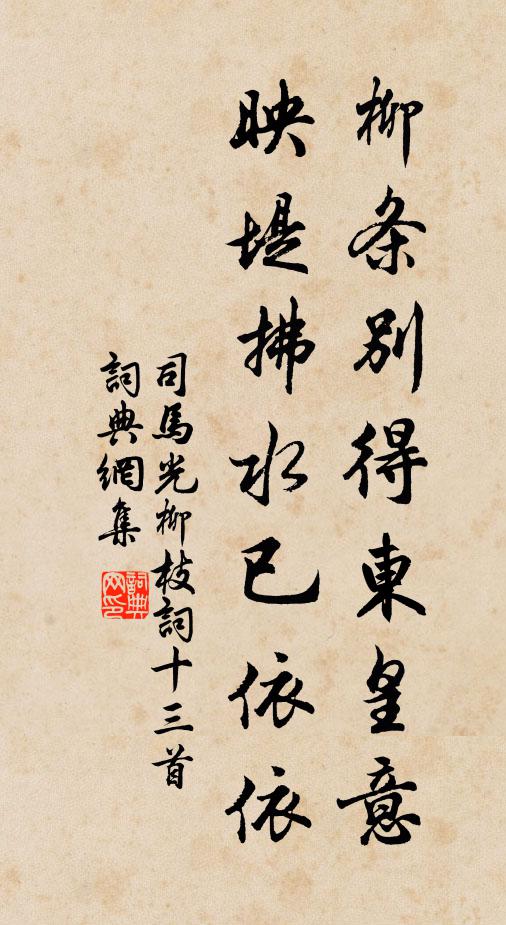 柳条别得東皇意
映堤拂水已依依
司馬光柳枝詞十三首
詞典網集
詞典网印